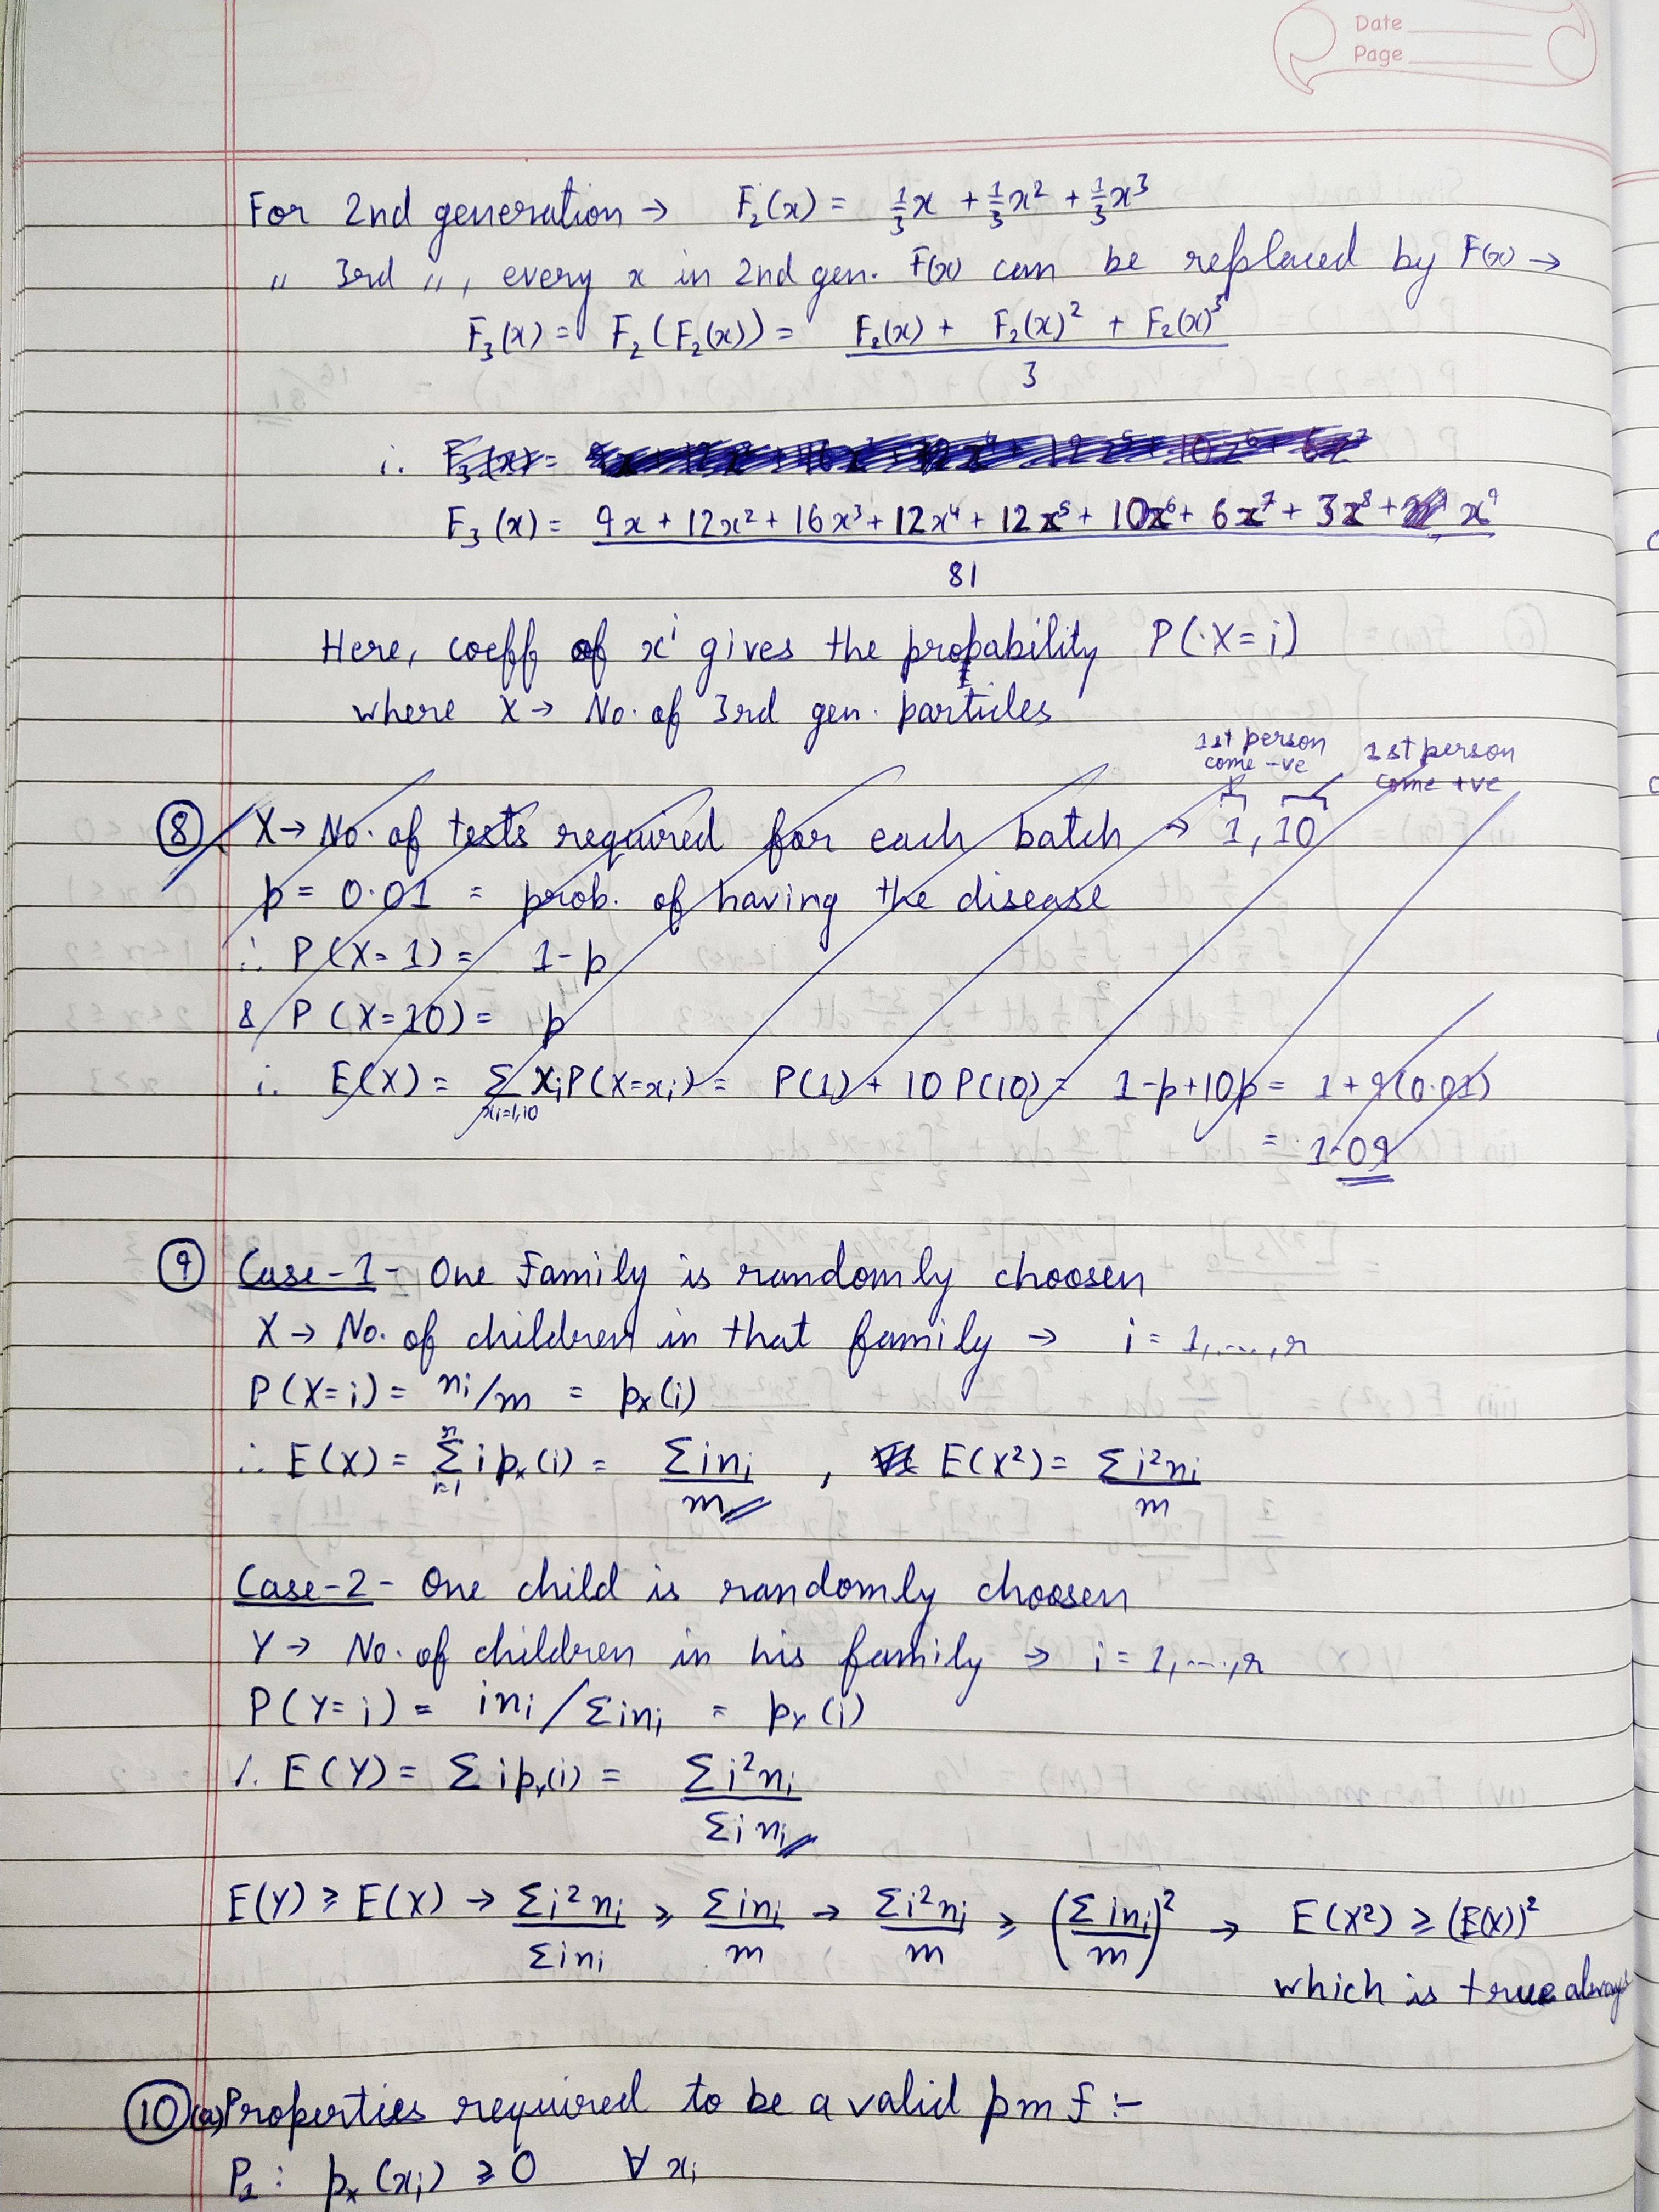 Date
Page
For 2nd generation → F₂(x) = 1/3 x + 1/3 x² + 1/3 x³
" 3rd ", every x in 2nd gen. F(x) can be replaced by F(x) →
F₃(x) = F₂(F₂(x)) = (F₂(x) + F₂(x)² + F₂(x)³) / 3
F₃(x) =
F₃(x) = (9x + 12x² + 16x³ + 12x⁴ + 12x⁵ + 10x⁶ + 6x⁷ + 3x⁸ + x⁹) / 81
Here, coeff of xⁱ gives the probability P(X=i)
where X → No. of 3rd gen. particles
1st person come -ve 1st person come +ve
⑧ X → No. of tests required for each batch → 1, 10
p = 0.01 = prob. of having the disease
∴ P(X=1) = 1-p
& P(X=10) = p
∴ E(X) = Σ_{xᵢ=1,10} xᵢP(X=xᵢ) = P(1) + 10 P(10) = 1-p+10p = 1+9(0.01)
= 1.09
⑨ Case-1 - One Family is randomly choosen
X → No. of children in that family → i = 1,....,r
P(X=i) = nᵢ/m = pₓ(i)
∴ E(X) = Σ i pₓ(i) = Σinᵢ / m , E(X²) = Σi²nᵢ / m
Case-2 - One child is randomly choosen
Y → No. of children in his family → i = 1,....,r
P(Y=i) = inᵢ/Σinᵢ = p_Y(i)
∴ E(Y) = Σ i p_Y(i) = Σi²nᵢ / Σinᵢ
E(Y) ≥ E(X) → Σi²nᵢ / Σinᵢ ≥ Σinᵢ / m → Σi²nᵢ / m ≥ (Σinᵢ / m)² → E(X²) ≥ (E(X))²
which is true always
⑩(a) Properties required to be a valid pmf :-
P₁ : pₓ(xᵢ) ≥ 0 ∀ xᵢ